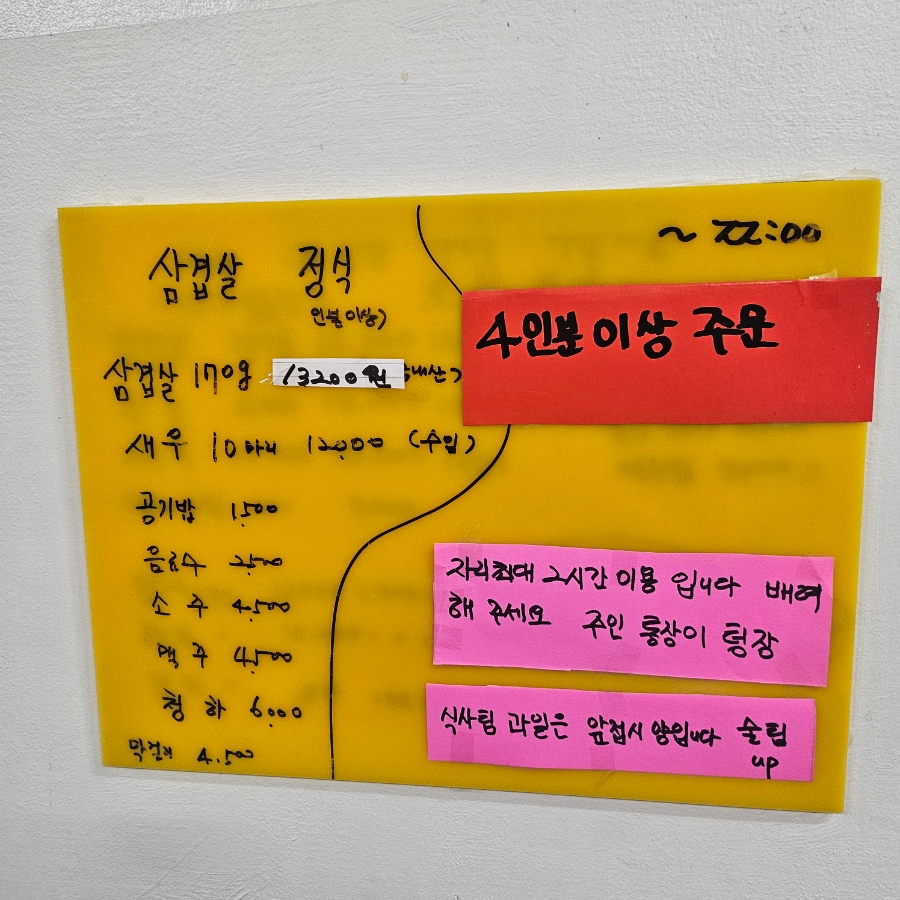 삼겹살 정식
인분이상)
삼겹살 170g 13200원 내산)
새우 10마리 12,000 (수입)
공기밥 1,500
음료수 2,500
소 주 4,500
맥 주 4,500
청 하 6,000
막걸리 4,500
~ 22:00
4인분 이상 주문
자리최대 2시간 이용 입니다 배여
해 주세요 주인 통상이 텅장
식사팀 과일은 앞접시 양입니다 술팀
up